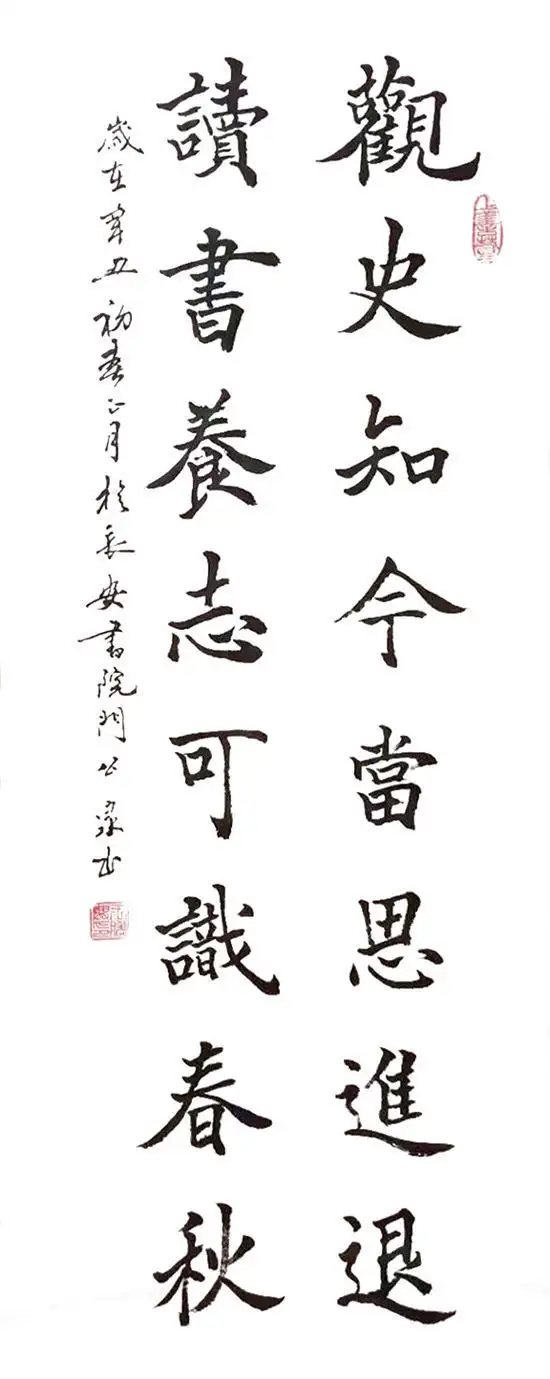 觀史知今當思進退
讀書養志可識春秋
歲在辛丑初春正月於長安書院門